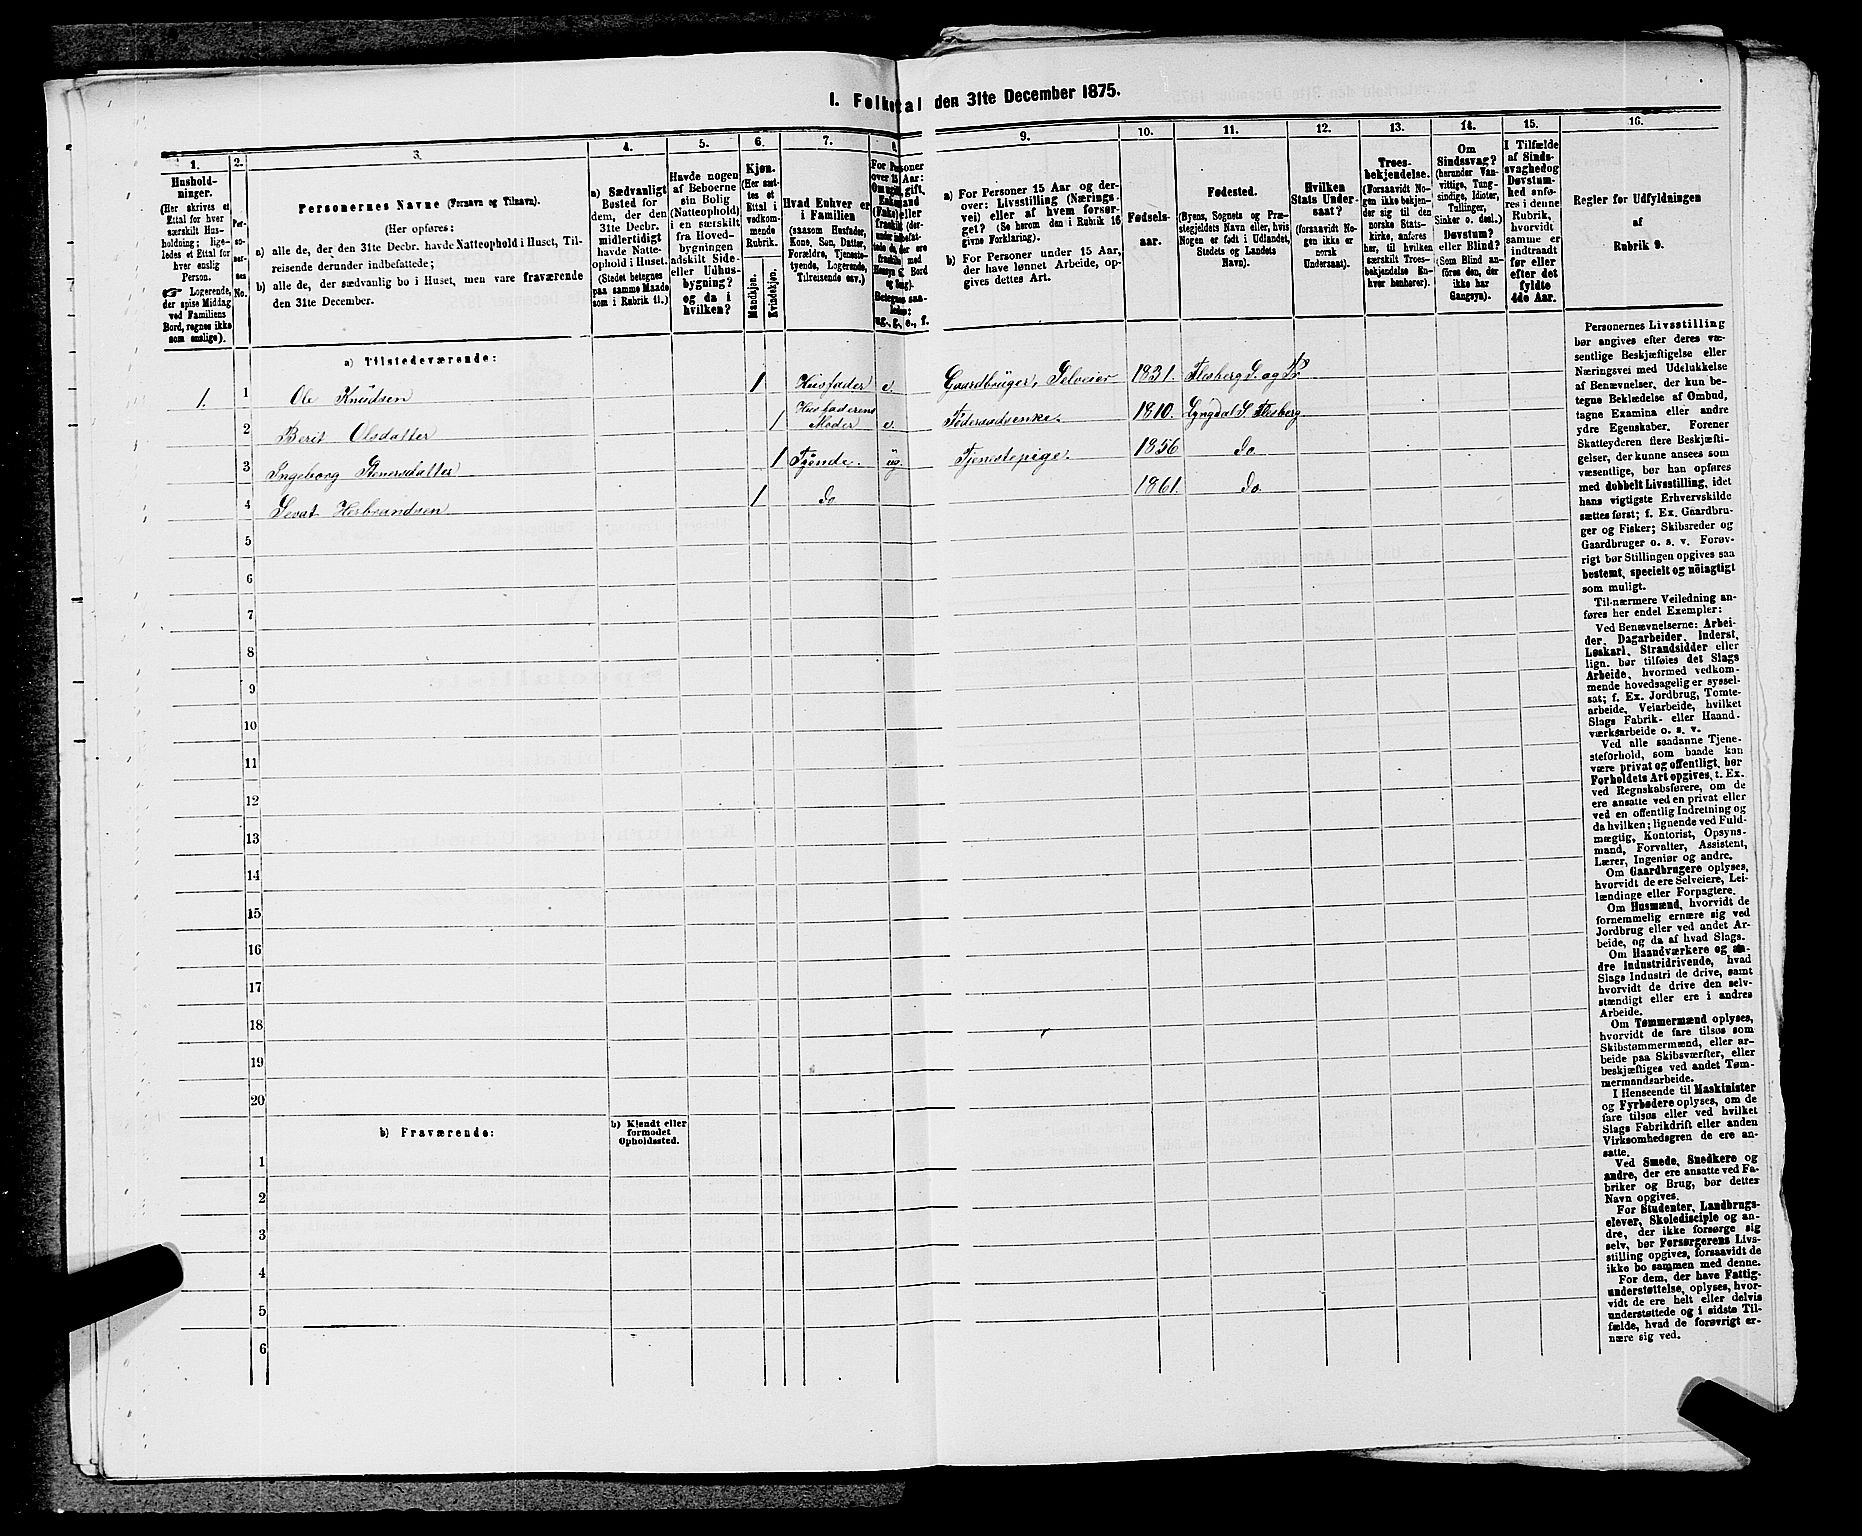 1. Folketal den 31te December 1875.
1.
Hushold-
ninger.
(Her skrives et
Ettal for hver
særskilt Hus-
holdning; lige-
ledes et Ettal for
hver enslig
Person.
☞ Logerende,
der spise Middag
ved Familiens
Bord, regnes ikke
som enslige).
2.
Per-
so-
ner-
nes
No.
3.
Personernes Navne (Fornavn og Tilnavn).
(Her opføres:
a) alle de, der den 31te Decbr. havde Natteophold i Huset, Til-
reisende derunder indbefattede;
b) alle de, der sædvanlig bo i Huset, men vare fraværende
den 31te December.
4.
a) Sædvanligt
Bosted for
dem, der den
31te Decbr.
midlertidigt
havde Natte-
ophold i Huset.
(Stedet betegnes
paa samme Maade
som i Rubrik 11.)
5.
Havde nogen
af Beboerne
sin Bolig
(Natteophold)
i en særskilt
fra Hoved-
bygningen
adskilt Side-
eller Udhus-
bygning?
og da i
hvilken?
6.
Kjøn.
(Her sæt-
tes et
Ettal i
vedkom-
mende
Rubrik.
Mandkjøn.
Kvindekjøn.
7.
Hvad Enhver er
i Familien
(saasom Husfader,
Kone, Søn, Datter,
Forældre, Tjeneste-
tyende, Logerende,
Tilreisende osv.)
8.
For Personer
over 15 Aar:
Om ugift, gift,
Enkemand
(Enke) eller
fraskilt (der-
under indbefat-
tede de, der ere
fraskilte med
Hensyn til Bord
og Seng).
Betegnes saa-
ledes:
ug., g., e., f.
9.
a) For Personer 15 Aar og der-
over: Livsstilling (Nærings-
vei) eller af hvem forsør-
get? (Se herom den i Rubrik 16
givne Forklaring).
b) For Personer under 15 Aar,
der have lønnet Arbeide, op-
gives dettes Art.
10.
Fødsels-
aar.
11.
Fødested.
(Byens, Sognets og Præ-
stegjeldets Navn eller, hvis
Nogen er født i Udlandet,
Stedets og Landets
Navn).
12.
Hvilken
Stats Under-
saat?
(forsaavidt No-
gen ikke er
norsk
Undersaat).
13.
Troes-
bekjendelse.
(Forsaavidt No-
gen ikke bekjen-
der sig til den
norske Stats-
kirke, anføres
her, til hvilken
særskilt Troes-
bekjendelse En-
hver henhører).
14.
Om
Sindssvag?
(herunder Van-
vittige, Tung-
sindige, Idioter,
Tullinger,
Sinker o. desl.)
Døvstum?
eller Blind?
(Som Blind an-
føres den, der
ikke har
Gangsyn).
15.
I Tilfælde
af Sinds-
svaghed og
Døvstum-
hed anfø-
res i denne
Rubrik,
hvorvidt
samme er
indtraadt
før eller
efter det
fyldte
4de Aar.
16.
Regler for Udfyldningen
af
Rubrik 9.
a) Tilstedeværende:
1. 1 Ole Knudsen 1 Husfader e. Gaardbruger, Selveier 1831. Flesberg S. og Pr
2 Berit Olsdatter 1 Husfaderens
Moder e. Føderaadsenke. 1810. Lyngdal S. Flesberg
3 Ingeborg Stenersdatter 1 Tjende. ug. Tjenestepige. 1856 do
4 Sevat Herbrandsen 1 do 1861. do.
5
6
7
8
9
10
11
12
13
14
15
16
17
18
19
20
b) Fraværende:
b) Kjendt eller
formodet
Opholdssted.
1
2
3
4
5
6
Personernes Livsstilling
bør angives efter deres væ-
sentlige Beskjæftigelse eller
Næringsvei med Udelukkelse
af Benævnelser, der kun be-
tegne Beklædelse af Ombud,
tagne Examina eller andre
ydre Egenskaber. Forener
Skatteyderen flere Beskjæfti-
gelser, der kunne ansees som
væsentlige, bør han opføres
med dobbelt Livsstilling, idet
hans vigtigste Erhvervskilde
sættes først; f. Ex. Gaardbru-
ger og Fisker; Skibsreder og
Gaardbruger o. s. v. Forøv-
rigt bør Stillingen opgives saa
bestemt, specielt og nöiagtigt
som muligt.
Til nærmere Veiledning an-
føres her endel Exempler:
Ved Benævnelserne: Arbei-
der, Dagarbeider, Inderst,
Løskarl, Strandsidder eller
lign. bør tilføies det Slags
Arbeide, hvormed vedkom-
mende hovedsagelig er syssel-
sat; f. Ex. Jordbrug, Tomte-
arbeide, Veiarbeide, hvilket
Slags Fabrik- eller Haand-
værksarbeide o. s. v.
Ved alle saadanne Tjene-
steforhold, som baade kan
være privat og offentligt, bør
Forholdets Art opgives, t. Ex.
ved Regnskabsførere, om de
ere ansatte ved en privat eller
ved en offentlig Indretning og
da hvilken; lignende ved Fuld-
mægtig, Kontorist, Opsyns-
mand, Forvalter, Assistent,
Lærer, Ingeniør og andre.
Om Gaardbrugere oplyses,
hvorvidt de ere Selveiere, Lei-
lændinge eller Forpagtere.
Om Husmænd, hvorvidt de
fornemmelig ernære sig ved
Jordbrug eller ved andet Ar-
beide, og da af hvad Slags.
Om Haandværkere og an-
dre Industridrivende, hvad
Slags Industri de drive, samt
hvorvidt de drive den selv-
stændigt eller ere i andres
Arbeide.
Om Tømmermænd oplyses,
hvorvidt de fare tilsøs som
Skibstømmermænd, eller ar-
beide paa Skibsværfter, eller
beskjæftiges ved andet Tøm-
mermandsarbeide.
I Henseende til Maskinister
og Fyrbødere oplyses, om de
fare tilsøs eller ved hvilket
Slags Fabrikdrift eller anden
Virksomhedsgren de ere an-
satte.
Ved Smede, Snedkere og
andre, der ere ansatte ved Fa-
briker og Brug, bør dettes
Navn opgives.
For Studenter, Landbrugs-
elever, Skoledisciple og an-
dre, der ikke forsørge sig
selv, bør Forsørgerens Livs-
stilling opgives, forsaavidt de
ikke bo sammen med denne.
For dem, der have Fattig-
understøttelse, oplyses, hvor-
vidt de ere helt eller delvis
understøttede og i sidste Til-
fælde, hvad de forøvrigt er-
nære sig ved.